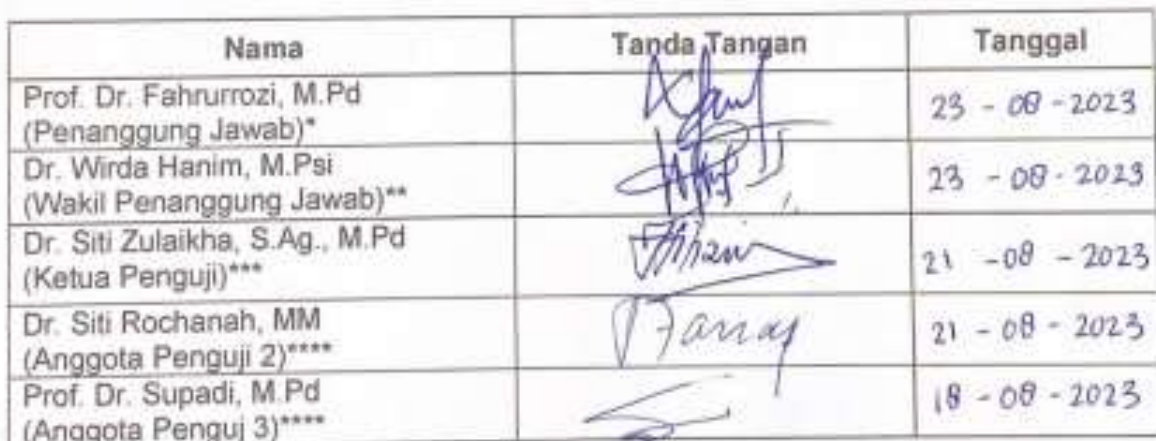 Nama Tanda Tangan Tanggal
Prof. Dr. Fahrurrozi, M.Pd
(Penanggung Jawab)* 23 - 08 - 2023
Dr. Wirda Hanim, M.Psi
(Wakil Penanggung Jawab)** 23 - 08 - 2023
Dr. Siti Zulaikha, S.Ag., M.Pd
(Ketua Penguji)*** 21 - 08 - 2023
Dr. Siti Rochanah, MM
(Anggota Penguji 2)**** 21 - 08 - 2023
Prof. Dr. Supadi, M.Pd
(Anggota Penguj 3)**** 18 - 08 - 2023